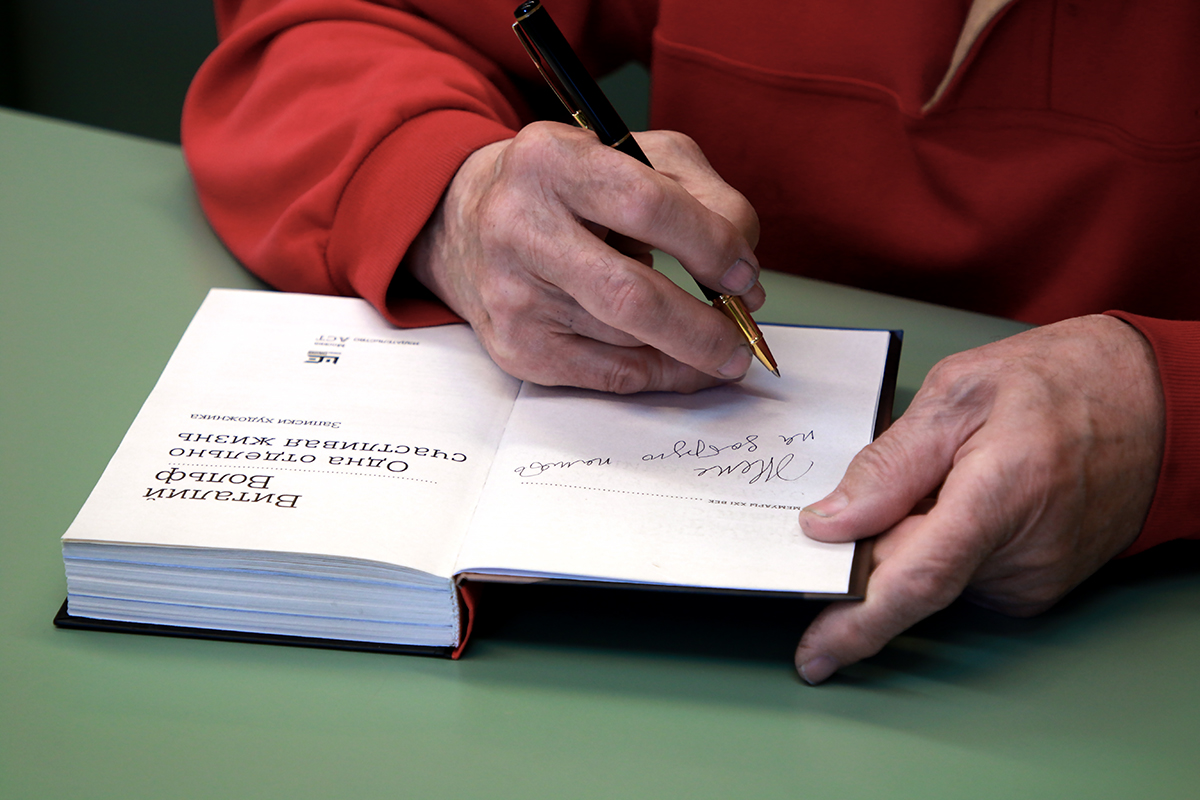 МЕМУАРЫ XXI ВЕК
Жене
на добрую память
Виталий
Вольф
Одна отдельно
счастливая жизнь
Записки художника
издательство АСТ
Москва